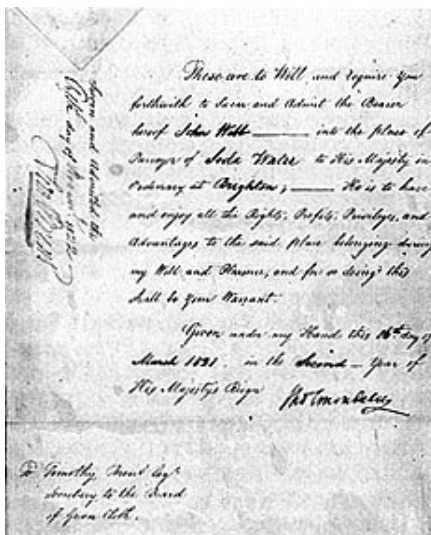 These are to Will and require You
forthwith to Swear and Admit the Bearer
hereof John Webb into the place of
Purveyor of Soda Water to His Majesty in
Ordinary at Brighton; He is to have
and enjoy all the Rights, Profits, Privileges, and
Advantages to the said Place belonging during
my Will and Pleasure, and for so doing this
shall be Your Warrant.
Given under my Hand this 16th day of
March 1821 in the Second Year of
His Majesty's Reign
Cholmondeley
To Timothy Brent Esqr.
Secretary to the Board
of Green Cloth.
Sworn and Admitted the
day of